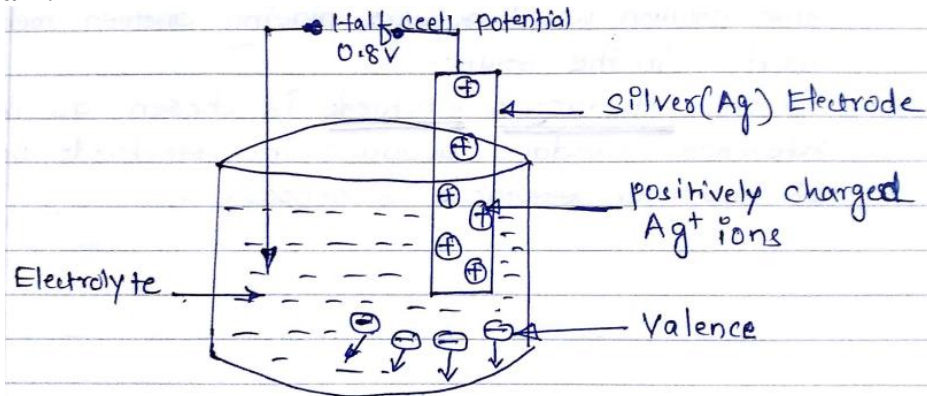 Half ccell potential
0.8V
Silver(Ag) Electrode
positively charged
Ag+ ions
Electrolyte
Valence